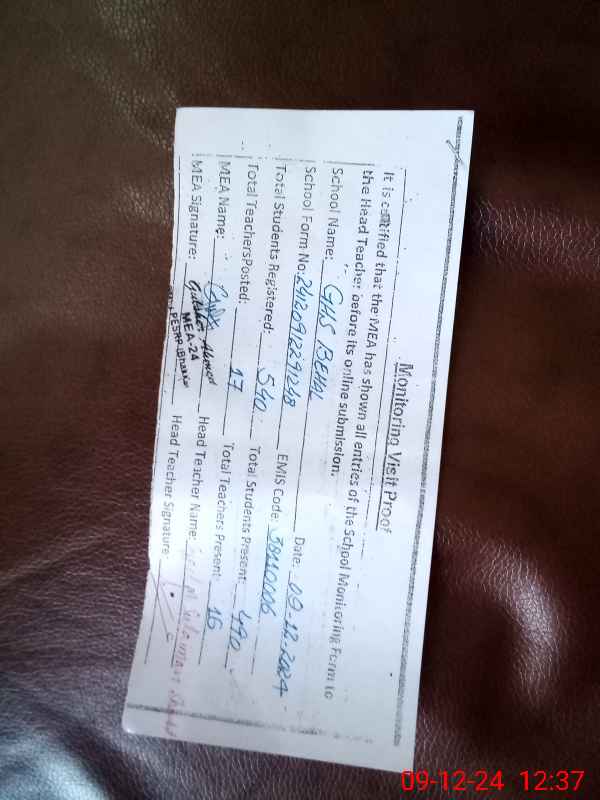 Monitoring Visit Proof
It is certified that the MEA has shown all entries of the School Monitoring Form to
the Head Teacher before its online submission.
School Name: GHS BEHAL Date: 09-12-2024
School Form No: EMIS Code:
Total Students Registered: 540 Total Students Present: 490
Total TeachersPosted: 17 Total Teachers Present: 16
MEA Name: Head Teacher Name:
MEA Signature: Head Teacher Signature
MEA-24
09-12-24 12:37